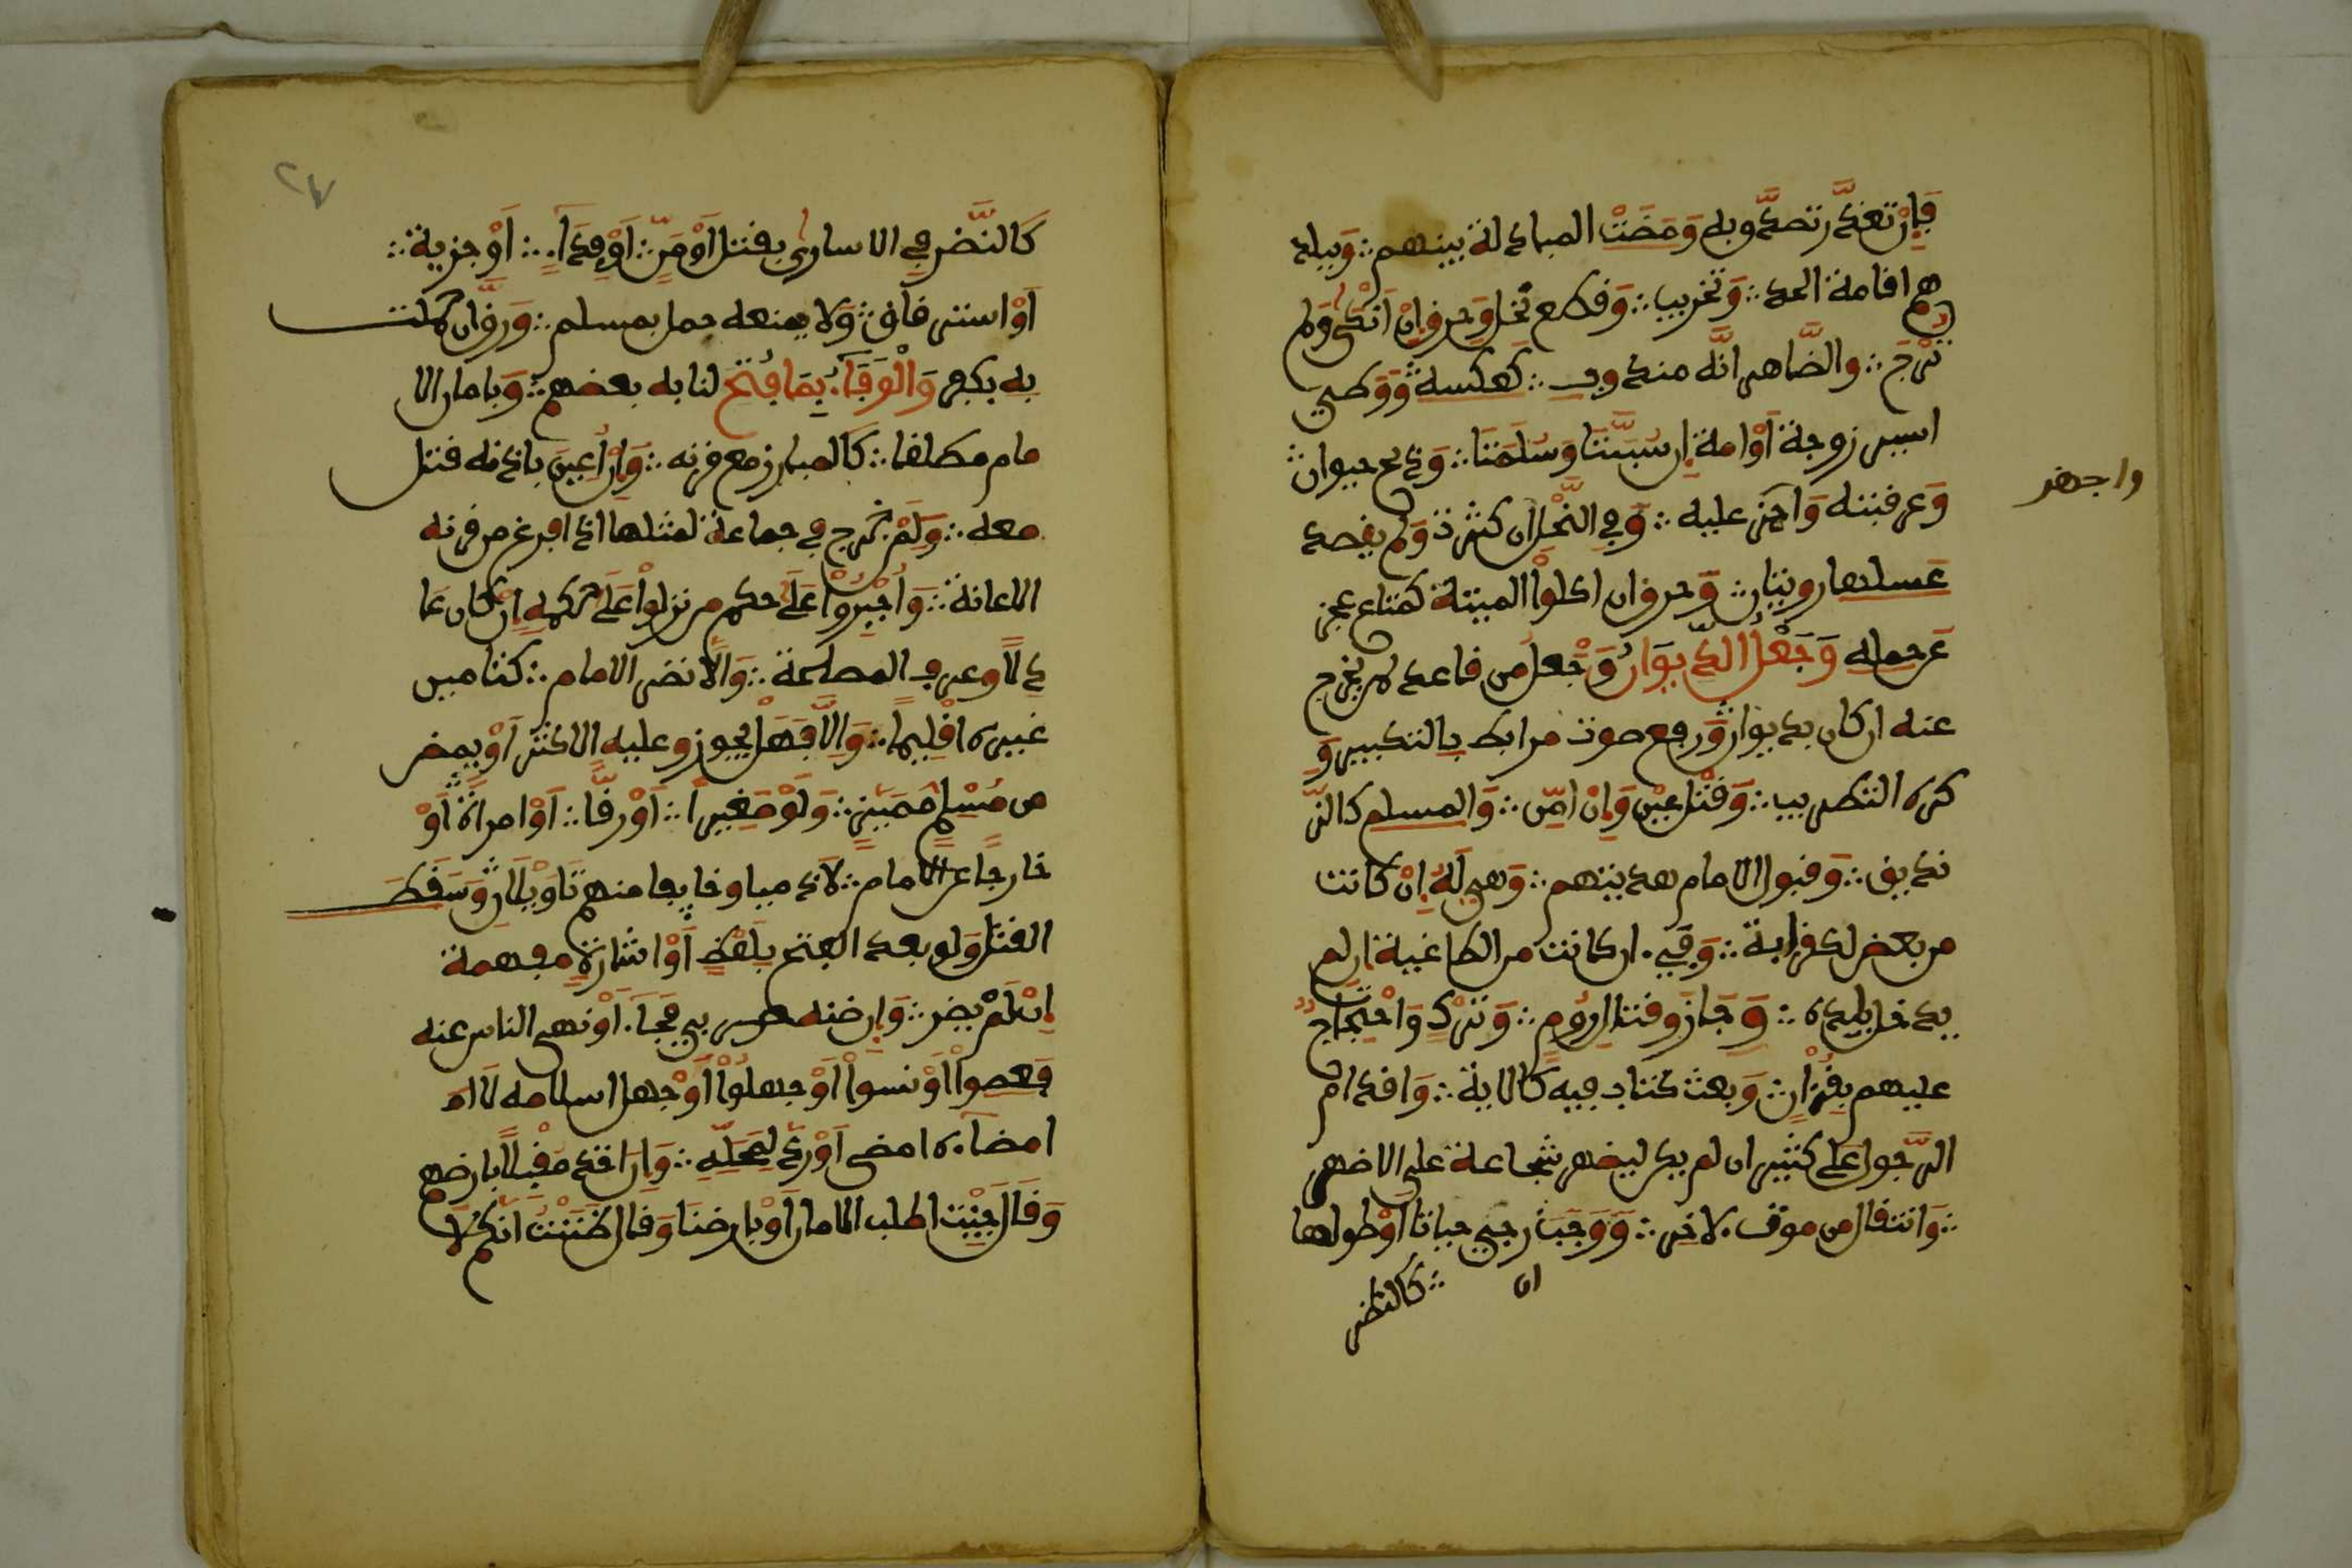 فإن تعذر تصدق به ومضت المبادلة بينهم وببلد
هم اقامة الحد وتخريب وقطع نخل وحرق إن أنكى ولم
ترج والضاهر انه مندوب كعكسه ووطء
اسير زوجة أو امة إن سبيتا وسلمتا وذبح حيوان
وعرقبته وأجهز عليه وفي النحل ان كثرت ولم يقصد
عسلها روايتان وحرق ان اكلوا الميتة كمتاع عجز
عن حمله وجعل الديوان وجعل من قاعد لمن يخرج
عنه ان كان بديوان ورفع صوت مرابط بالتكبير و
كره التطريب وقتل عين وإن امن والمسلم كالز
نديق وقبول الامام هديتهم وهي له إن كانت
من بعض لكقرابة وفيء ان كانت من الطاغية ان لم
يدخل بلده وجاز قتال روم وترك واحتجاج
عليهم بقرآن وبعث كتاب فيه كالاية واقدام
الرجل على كثير ان لم يكن ليضهر شجاعة على الاضهر
وانتقال من موت لاخر ووجب ان رجي حياتا أو طولها
كالنظر
واجهز
٢٧
كالنضر في الاسارى بقتل أو من أو فداء أو جزية
أو استرقاق ولا يمنعه حمل بمسلم ورق ان حملت
به بكفر والوفاء بما فتح لنا به بعضهم وبامان الا
مام مطلقا كالمبارز مع قرنه وإن أعين باذنه قتل
معه ولمن خرج في جماعة لمثلها اذا افرغ من قرنه
الاعانة وأجبروا على حكم من نزلوا على حكمه إن كان عا
دلا وعرف المصلحة والا نضر الامام كتامين
غيره اقليما وإلا فهل يجوز وعليه الاكثر أو يمضى
من مسلم مميز ولو صغيرا أو رقا أو امرأة أو
خارجا عن الامام لا ذميا وخايفا منهم تاويلان وسقط
القتل ولو بعد الفتح بلفظ أو اشارة مفهمة
إن لم يضر وإن ضنه حربي فجاء أو نهى الناس عنه
فعصوا أو نسوا أو جهلوا أو جهل اسلامه لا ام
امضاءه امضى أو رد لمحله وإن اخذ مقبلا بارضهم
وقال جيت اطلب الامان أو بارضنا وقال ظننت انكم لا